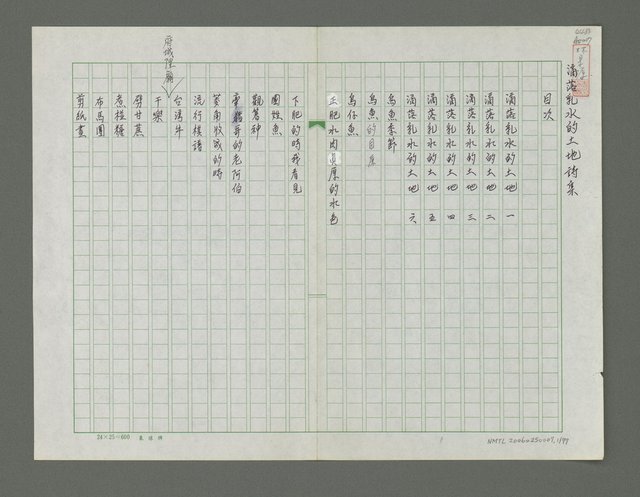 滴落乳水的土地詩集
目次
滴落乳水的土地 一
滴落乳水的土地 二
滴落乳水的土地 三
滴落乳水的土地 四
滴落乳水的土地 五
滴落乳水的土地 六
烏魚季節
烏魚的目屎
烏仔魚
土肥水肉真厚的水色
下肥的時我看見
國姓魚
觀著神
的老阿伯
菱角收成的時
流行模譜
台灣牛
府城隍廟
干樂
劈甘蔗
煮糖
布馬團
剪紙畫
24×25=600
NMTL20060250007, 1/99